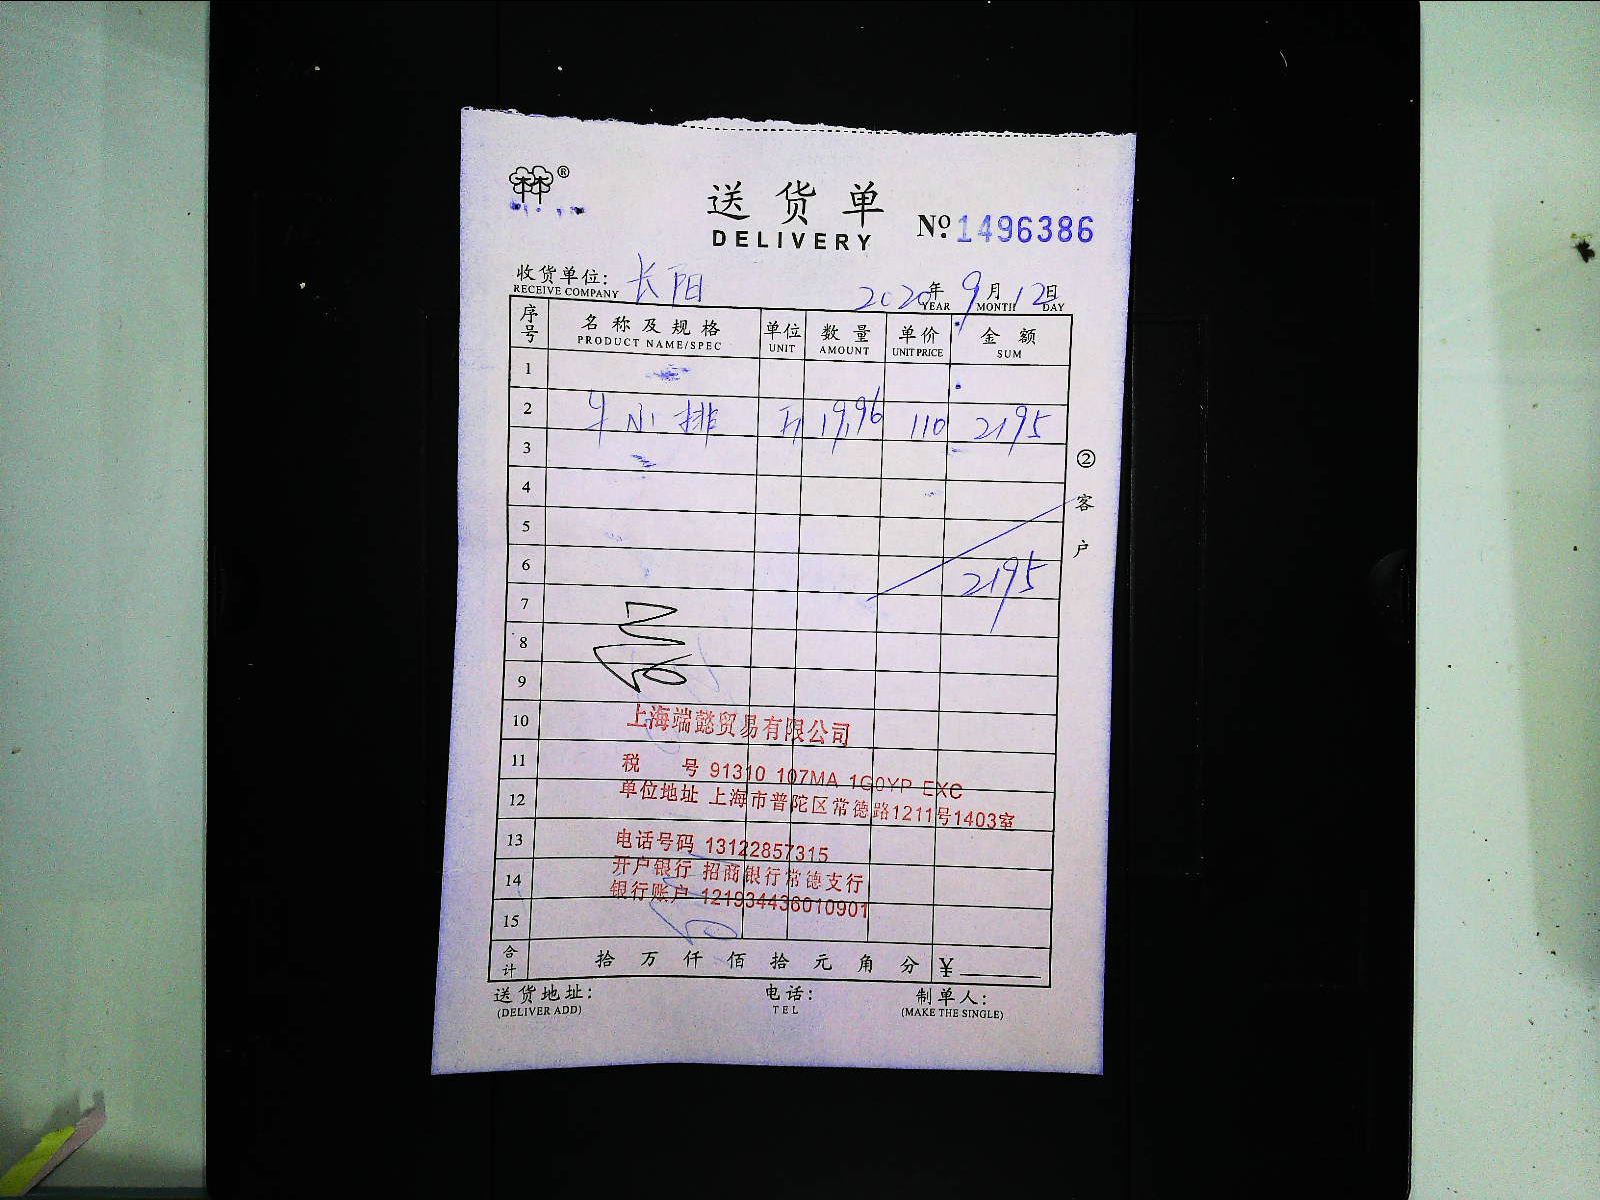 ®
送货单
DELIVERY
No. 1496386
收货单位: 长阳 2020年9月12日
RECEIVE COMPANY YEAR MONTH DAY
序号 名称及规格 单位 数量 单价 金额
PRODUCT NAME/SPEC UNIT AMOUNT UNIT PRICE SUM
1
2 牛小排 斤 19.96 110 2195
3
4
5
6 2195
7
8
9
10 上海端懿贸易有限公司
11 税 号 91310 107MA 1G0YP EXC
12 单位地址 上海市普陀区常德路1211号1403室
13 电话号码 13122857315
14 开户银行 招商银行常德支行
银行账户 121934436010901
15
合计 拾 万 仟 佰 拾 元 角 分 ¥
送货地址: 电话: 制单人:
(DELIVER ADD) TEL (MAKE THE SINGLE)
②客户